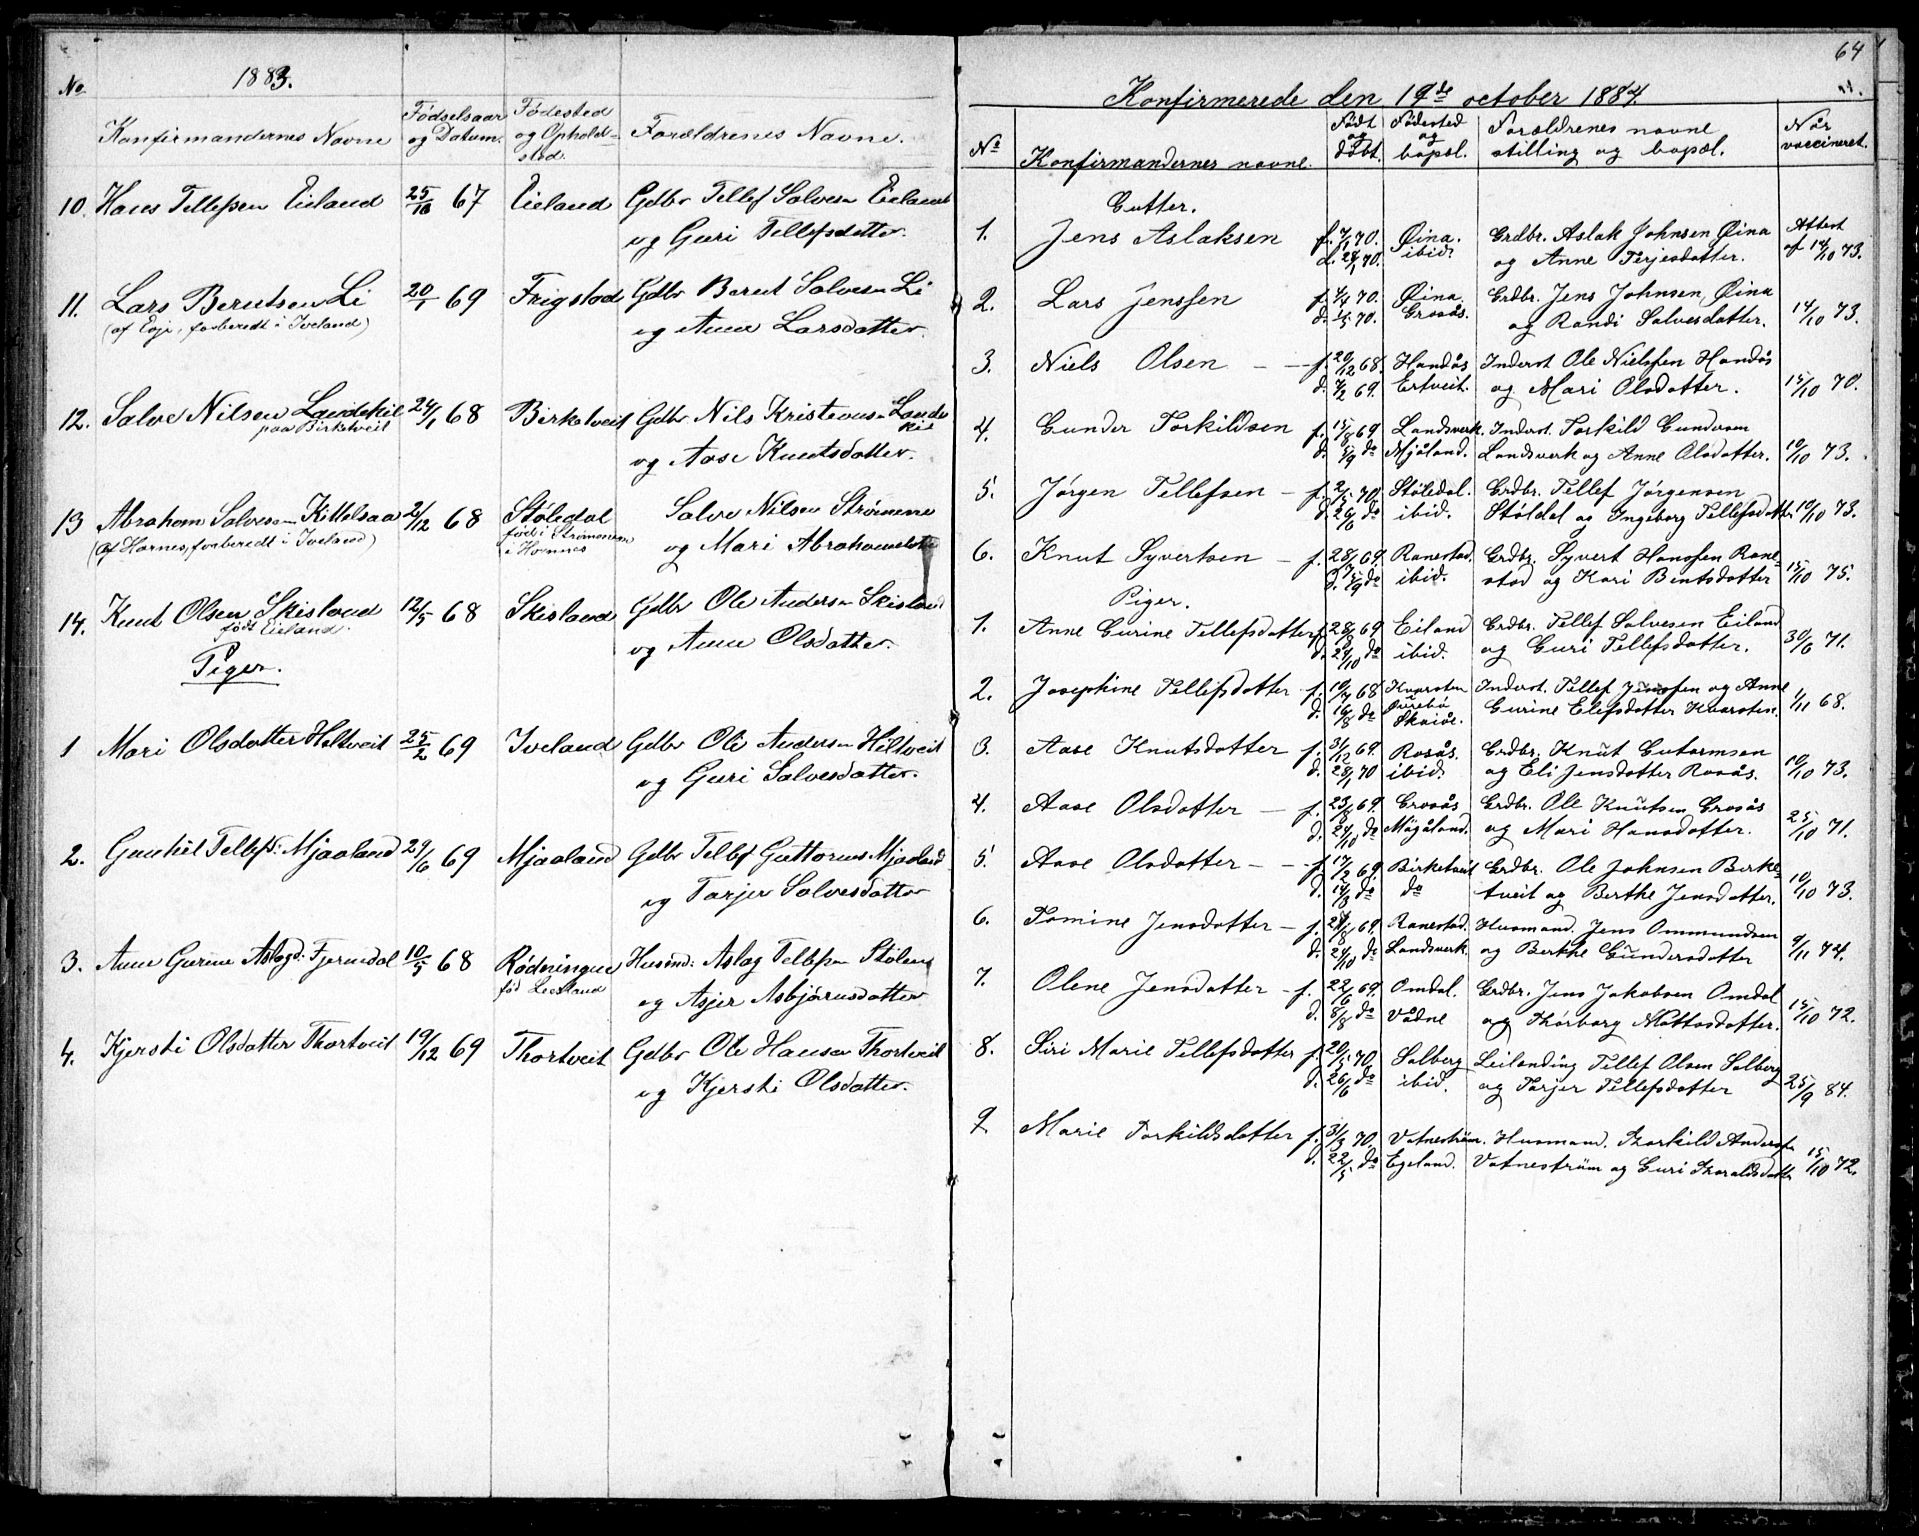 1883.
No
Konfirmandernes Navne
Fødselsaar og Datum.
Fødested og Opholdssted.
Forældrenes Navne.
10. Hans Tellefsen Eieland 25/10 67 Eieland Gdbr Tellef Salvesen Eieland
og Guri Tellefsdatter.
11. Lars Berntsen Li 20/1 69 Frigstad Gdbr Bernt Salvesen Li
(af Evje, forberedt i Iveland) og Anne Larsdatter.
12. Salve Nilsen Landekil 24/1 68 Birketveit Gdbr Nils Kristensen Landekil
paa Birketveit
og Aase Knutsdatter.
13 Abraham Salvesen Kittelsaa 2/12 68 Støledal Salve Nilsen Strømene
(af Hornes, forberedt i Iveland) født i Strømmen i Hornnes og Mari Abrahamsdatter
14. Knut Olsen Skisland 12/5 68 Skisland Gdbr Ole Andersen Skisland
født Eieland.
og Anne Olsdatter.
Piger.
1 Mari Olsdatter Hiltveit 25/2 69 Iveland Gdbr Ole Andersen Hiltveit
og Guri Salvesdatter.
2. Gunhil Tellefs: Mjaaland 29/6 69 Mjaaland Gdbr Tellef Guttormsen Mjaaland
og Tarjer Salvesdatter
3. Anne Gurine Aslagd: Fjermedal 10/5 68 Rødningen Husmd: Aslag Tellefsen Stølen
fød Leeland
og Asjer Asbjørnsdatter
4. Kjersti Olsdatter Thortveit 19/12 69 Thortveit Gdbr Ole Hansen Thortveit
og Kjersti Olsdatter.
64
Konfirmerede den 19de october 1884.
No
Konfirmandernes navne.
Født og døbt.
Fødested og bopæl.
Forældrenes navne stilling og bopæl.
Når vaccineret.
Gutter.
1. Jens Aslaksen f. 7/1 70. Øina. Grdbr. Aslak Johnsen Øina Attest
d. 28/1 70. ibid. og Anne Terjesdatter. af 14/10 73.
2. Lars Jenssen f. 4/4 70. Øina. Grdbr. Jens Johnsen, Øina
d. 1/5 70. Grosås. og Randi Salvesdatter. 14/10 73.
3. Niels Olsen f. 20/12 68. Handås Inderst Ole Nielsen Handås
d. 7/2 69. Ertveit. og Mari Olsdatter. 15/10 70.
4. Gunder Torkildsen f. 15/8 69 Landsverk. Inderst. Torkild Gundersen
d. 5/9 do Mjåland. Landsverk og Anne Olsdatter. 10/10 73.
5. Jørgen Tellefsen f. 2/5 70. Støledal. Grdbr. Tellef Jørgensen
d. 26/6 do ibid. Støldal og Ingeborg Tellefsdatter 10/10 73.
6. Knut Syvertsen f. 28/7 69. Ranestad. Grdbr. Syvert Hansen Rane-
d. 5/9 do ibid. stad og Kari Bentsdatter 15/10 75.
Piger.
1. Anne Gurine Tellefsdatter f. 28/8 69 Eiland Grdbr. Tellef Salvesen Eiland
d. 24/10 do ibid. og Guri Tellefsdatter. 30/6 71.
2. Josephine Tellefsdatter f. 10/7 68 Kvarsten Inderst. Tellef Jensen og Anne
d. 16/8 do Skaiå. Gurine Elefsdatter Kvarsten. 1/11 68.
3. Aase Knutsdatter f. 31/12 69. Rosås. Grdbr. Knut Gutormsen
d. 28/1 70 ibid. og Eli Jensdatter Rosås. 10/10 73.
4. Aase Olsdatter f. 23/8 69. Grosås Grdbr. Ole Knutsen Grosås
d. 24/10 do Møgåland. og Mari Hansdatter. 25/10 71.
5. Aase Olsdatter f. 17/2 69. Birketveit Grdbr. Ole Johnsen Birke-
d. 14/3 do do tveit og Berthe Jensdatter. 10/10 73.
6. Tomine Jensdatter f. 28/8 69. Ranestad. Husmand. Jens Ommundsen
d. 24/10 do Landsverk. og Berthe Gundersdatter 9/11 74.
7. Olene Jensdatter f. 22/6 69. Omdal. Grdbr. Jens Jakobsen Omdal
d. 8/8 do Vådne og Thorborg Mattosdatter. 15/10 72.
8. Siri Marie Tellefsdatter f. 20/5 70. Solberg Leilending Tellef Olsen Solberg
d. 26/6 do ibid. og Tarjer Tellefsdatter 25/9 84.
9 Marie Torkildsdatter f. 31/3 70. Vatnestrøm. Husmand. Thorkild Andersen
d. 22/5 do Egeland. Vatnestrøm og Guri Tharaldsdatter 15/10 72.